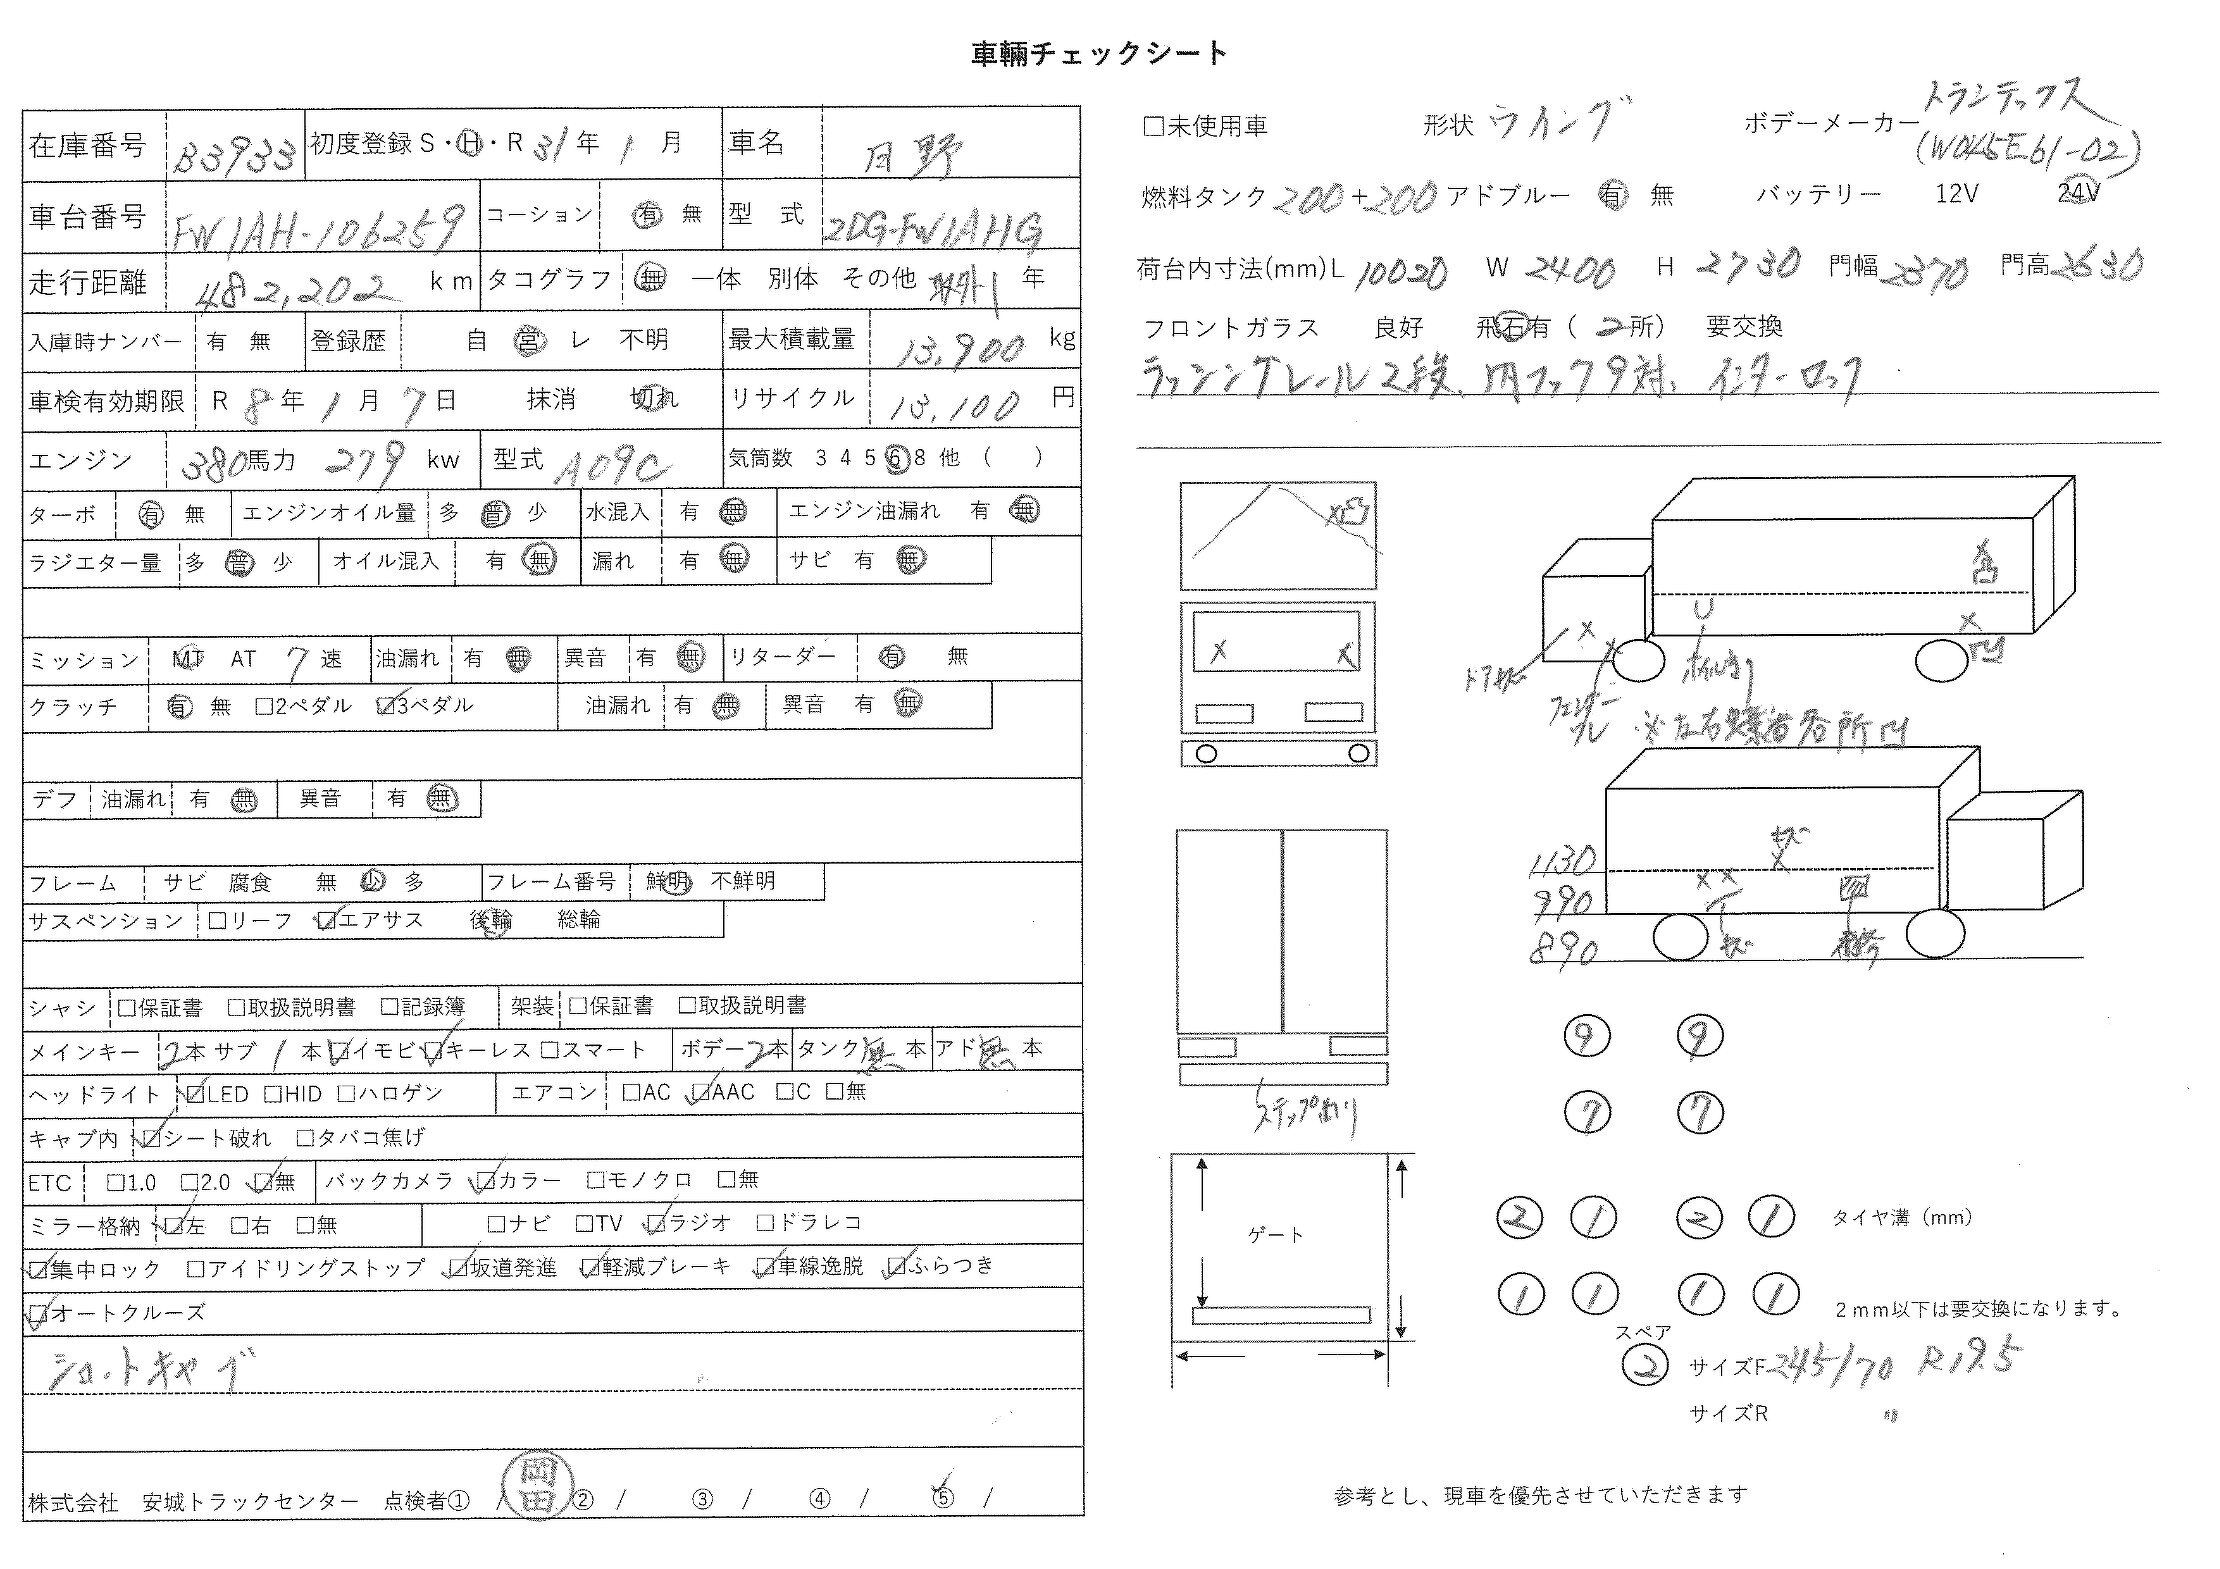 車輛チェックシート
在庫番号 B3933 初度登録 S・H・R 31年 1月 車名 日野
車台番号 FW1AH-106259 コーション 有 無 型式 2DG-FW1AHG
走行距離 482,202 km タコグラフ 無 一体 別体 その他 年
入庫時ナンバー 有 無 登録歴 自 営 レ 不明 最大積載量 13,900 kg
車検有効期限 R 8年 1月 7日 抹消 切れ リサイクル 13,100 円
エンジン 380馬力 279 kw 型式 A09C 気筒数 3 4 5 6 8 他 ( )
ターボ 有 無 エンジンオイル量 多 普 少 水混入 有 無 エンジン油漏れ 有 無
ラジエター量 多 普 少 オイル混入 有 無 漏れ 有 無 サビ 有 無
ミッション MT AT 7速 油漏れ 有 無 異音 有 無 リターダー 有 無
クラッチ 有 無 □2ペダル ☑3ペダル 油漏れ 有 無 異音 有 無
デフ 油漏れ 有 無 異音 有 無
フレーム サビ 腐食 無 少 多 フレーム番号 鮮明 不鮮明
サスペンション □リーフ ☑エアサス 後輪 総輪
シャシ □保証書 □取扱説明書 □記録簿 架装 □保証書 □取扱説明書
メインキー 2本 サブ 1本 ☑イモビ ☑キーレス □スマート ボデー2本 タンク無本 アド無本
ヘッドライト ☑LED □HID □ハロゲン エアコン □AC ☑AAC □C □無
キャブ内 ☑シート破れ □タバコ焦げ
ETC □1.0 □2.0 ☑無 バックカメラ ☑カラー □モノクロ □無
ミラー格納 ☑左 □右 □無 □ナビ □TV ☑ラジオ □ドラレコ
☑集中ロック □アイドリングストップ ☑坂道発進 ☑軽減ブレーキ ☑車線逸脱 ☑ふらつき
☑オートクルーズ
ショートキャブ
株式会社 安城トラックセンター 点検者① / 岡田 ② / ③ / ④ / ⑤ /
□未使用車 形状 ウイング ボデーメーカー トランテックス
(W045E61-02)
燃料タンク 200+200 アドブルー 有 無 バッテリー 12V 24V
荷台内寸法(mm)L 10020 W 2400 H 2730 門幅 2370 門高 2630
フロントガラス 良好 飛石有 ( 2所) 要交換
ラッシングレール2段、内フック9対、インターロック
×凹
×
凸
× × × × ×
凹
フェンダー
※左右
所凹
サビ
×
1130
× ×
990
サビ
890
ステップめり
ゲート
9 9
7 7
2 1 2 1 タイヤ溝 (mm)
1 1 1 1 2mm以下は要交換になります。
スペア
2 サイズF 245/70 R19.5
サイズR 〃
参考とし、現車を優先させていただきます